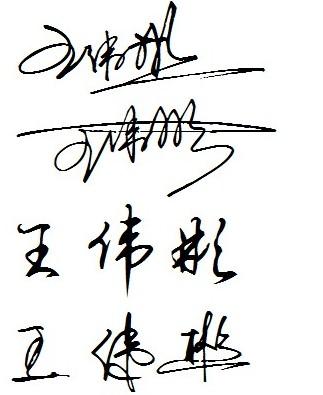 王伟彬
王伟彬
王伟彬
王伟彬